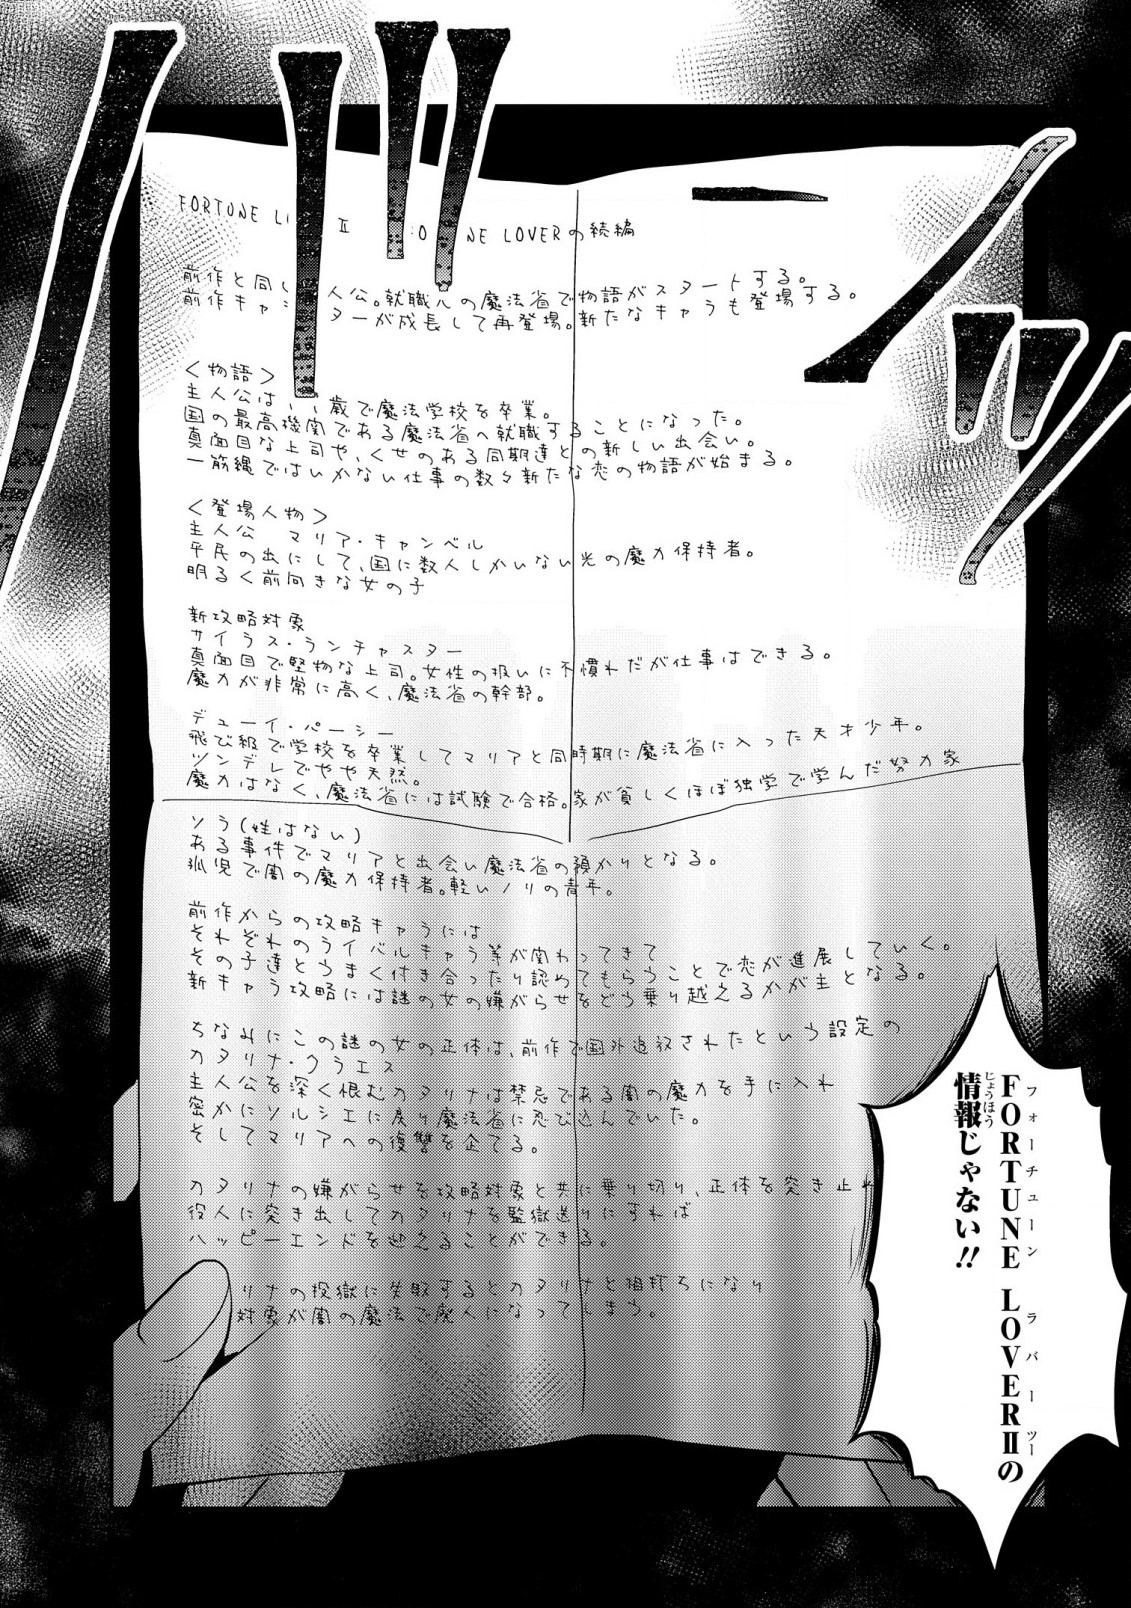 FORTUNE L Ⅱ O NE LOVERの続編
前作と同じ 人公。就職先の魔法省で物語がスタートする。
前作キャ ターが成長して再登場。新たなキャラも登場する。
<物語>
主人公は 歳で魔法学校を卒業。
国の最高機関である魔法省へ就職することになった。
真面目な上司や、くせのある同期達との新しい出会い。
一筋縄ではいかない仕事の数々新たな恋の物語が始まる。
<登場人物>
主人公 マリア・キャンベル
平民の出にして、国に数人しかいない光の魔力保持者。
明るく前向きな女の子
新攻略対象
サイラス・ランチャスター
真面目で堅物な上司。女性の扱いに不慣れだが仕事はできる。
魔力が非常に高く、魔法省の幹部。
デューイ・パーシー
飛び級で学校を卒業してマリアと同時期に魔法省に入った天才少年。
ツンデレでやや天然。
魔力はなく、魔法省には試験で合格。家が貧しくほぼ独学で学んだ努力家
ソラ(姓はない)
ある事件でマリアと出会い魔法省の預かりとなる。
孤児で闇の魔力保持者。軽いノリの青年。
前作からの攻略キャラには
それぞれのライバルキャラ等が関わってきて
その子達とうまく付き合ったり認めてもらうことで恋が進展していく。
新キャラ攻略には謎の女の嫌がらせをどう乗り越えるかが主となる。
ちなみにこの謎の女の正体は、前作で国外追放されたという設定の
カタリナ・クラエス
主人公を深く恨むカタリナは禁忌である闇の魔力を手に入れ
密かにソルシエに戻り魔法省に忍び込んでいた。
そしてマリアへの復讐を企てる。
カタリナの嫌がらせを攻略対象と共に乗り切り、正体を突き止め
役人に突き出してカタリナを監獄送りにすれば
ハッピーエンドを迎えることができる。
リナの投獄に失敗するとカタリナと相打ちになり
対象が闇の魔法で廃人になってしまう。
FORTUNE LOVERⅡの
フォーチューン ラバーツー
情報じゃない!!
じょうほう